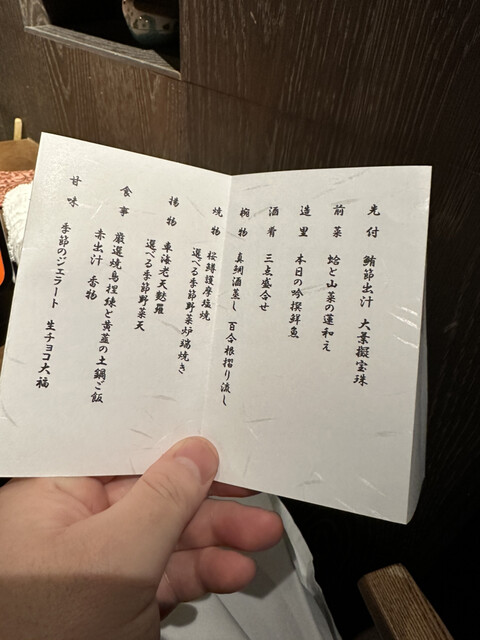 先付 鮪節出汁 大葉擬宝珠
前菜 蛤と山菜の蓮和え
造里 本日の吟撰鮮魚
酒肴 三点盛合せ
椀物 真鯛酒蒸し 百合根摺り流し
焼物 桜鱒護摩塩焼
選べる季節野菜炉端焼き
揚物 車海老天麩羅
選べる季節野菜天
食事 厳選焼鳥捏練と黄韮の土鍋ご飯
赤出汁 香物
甘味 季節のジェラート 生チョコ大福